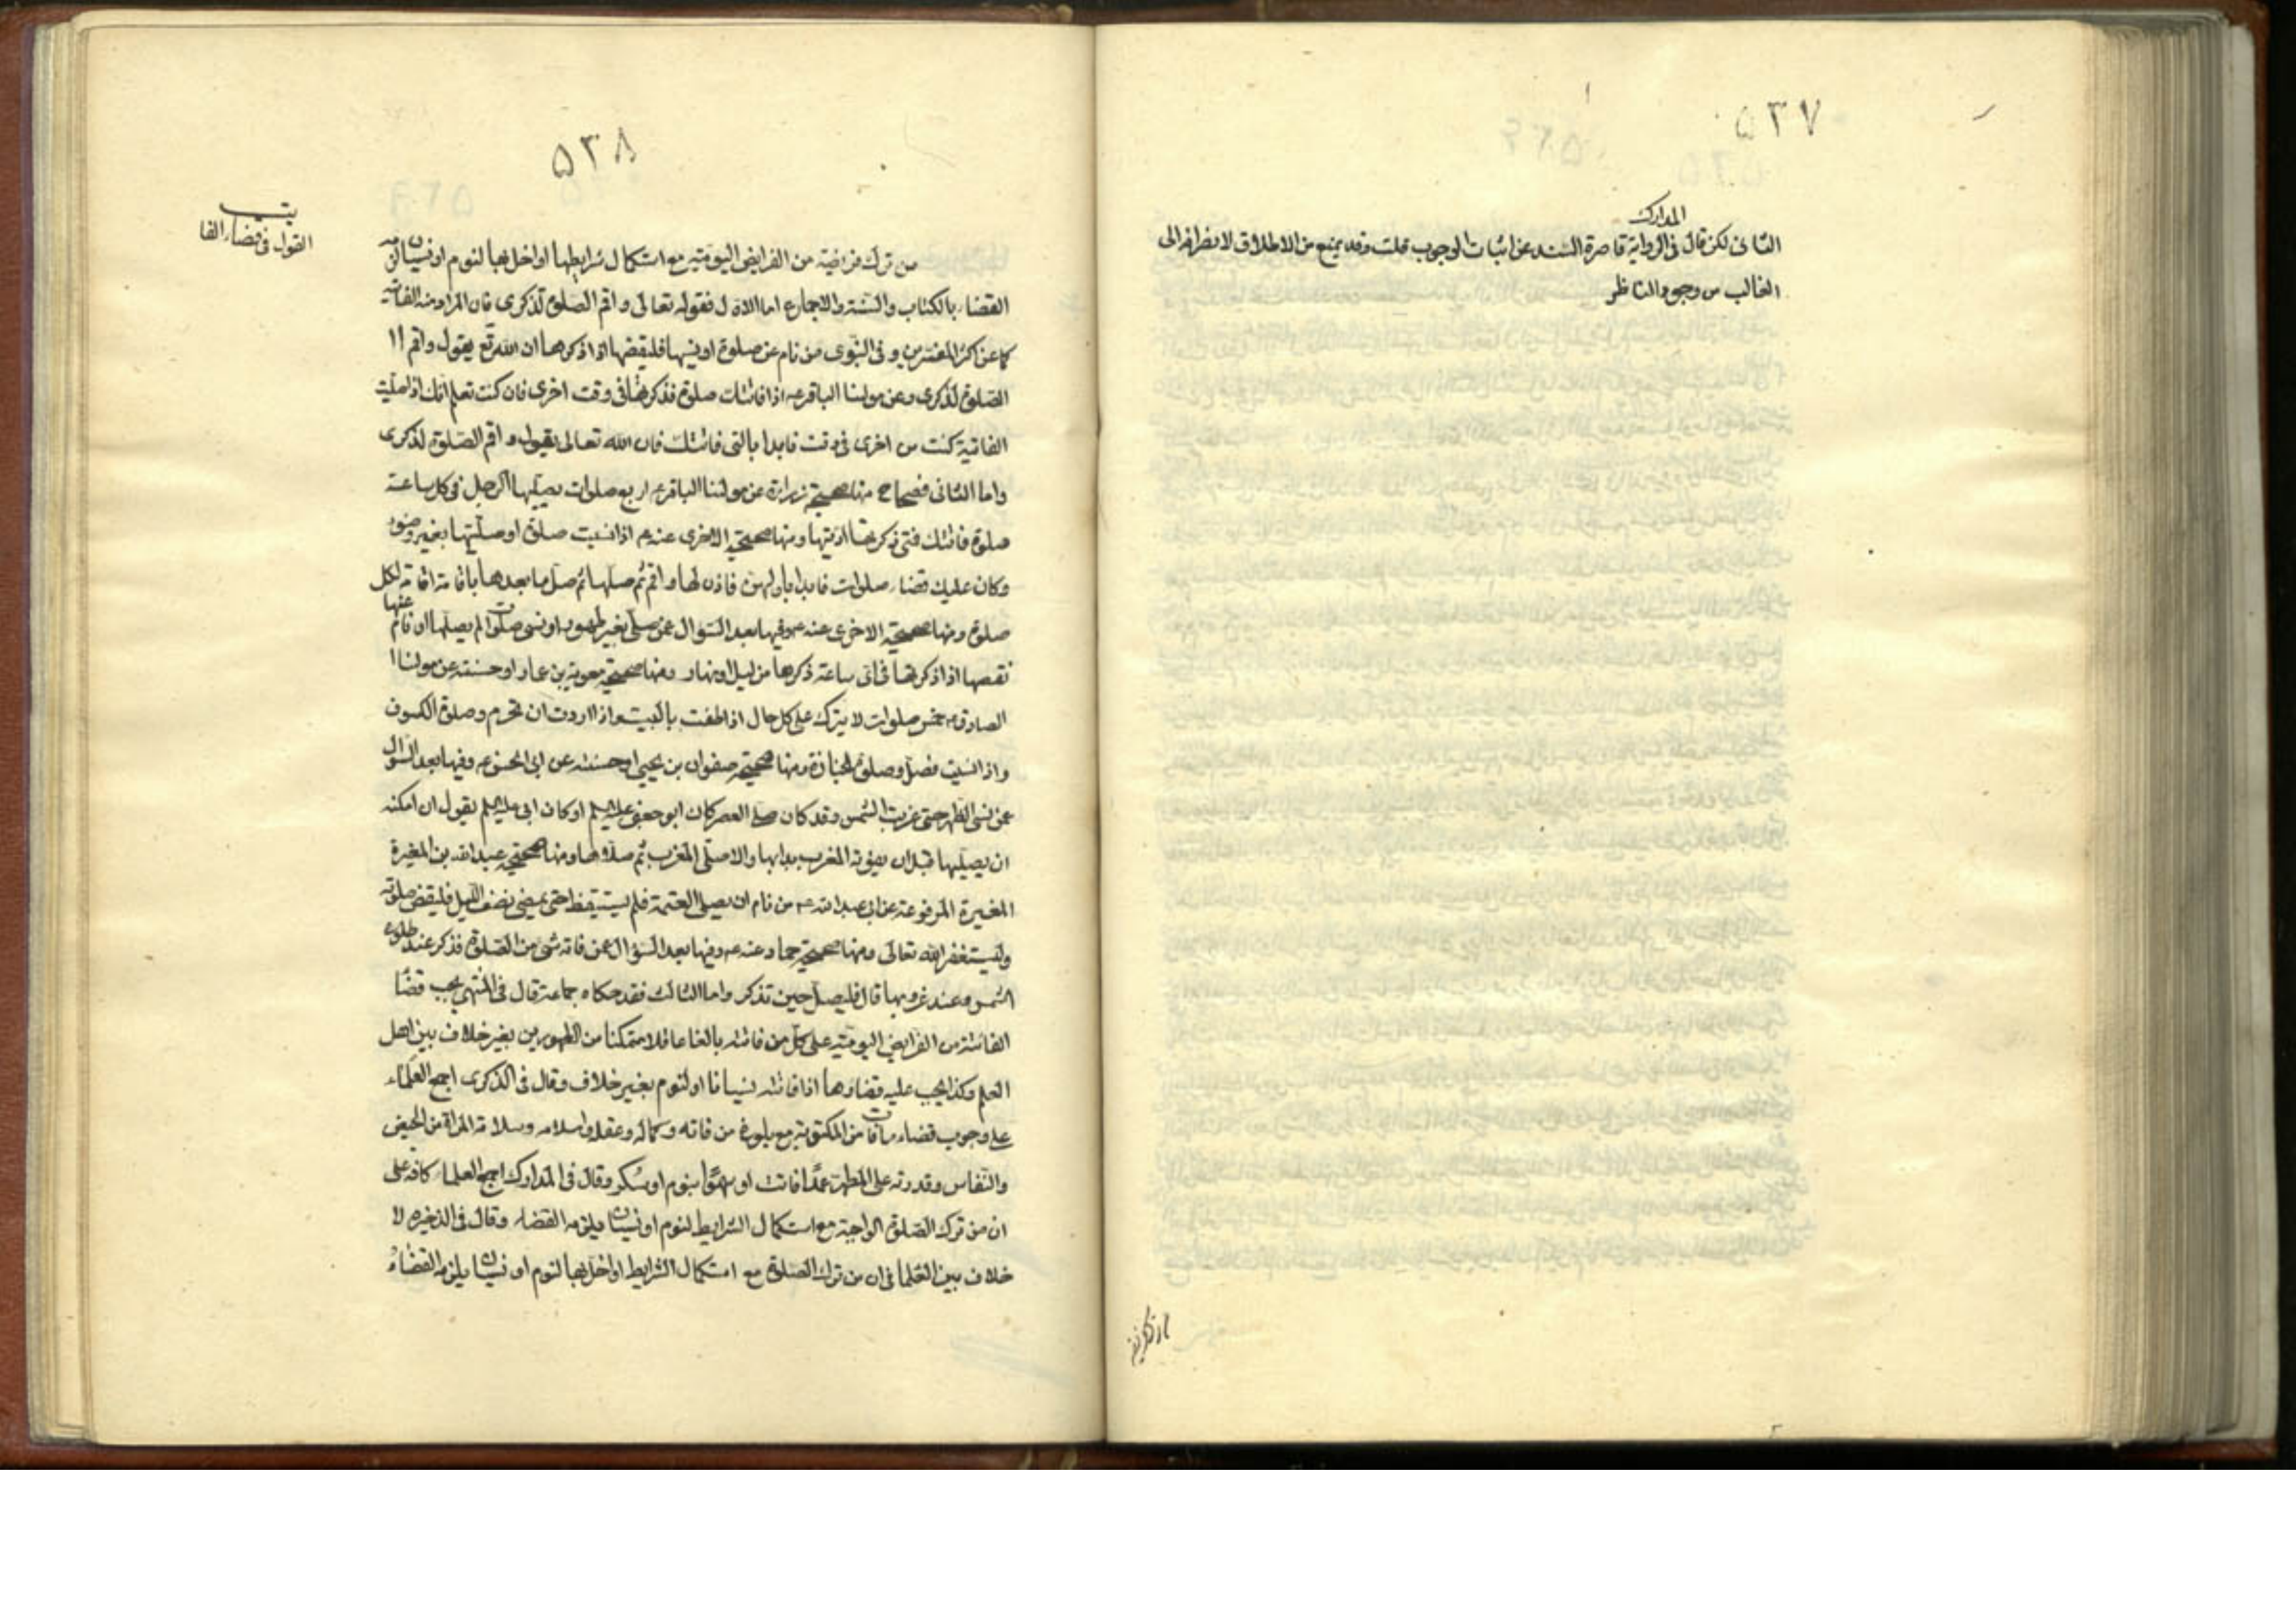 ٥٣٧
المدارك
الثانى لكن قال فى الرواية قاصرة السند عن اثبات الوجوب قلت وقد يمنع من الاطلاق لانصرافه الى
الغالب من وجود الناظر
٥٣٨
القول فى قضاء الفا
من ترك فريضة من الفرايض اليومية مع استكمال شرايطها او اخل بها لنوم او نسيان
القضاء بالكتاب والسنة والاجماع اما الاول فقوله تعالى واقم الصلوة لذكرى فان المراد منه الفائتة
كما عن اكثر المفسرين وفى النبوى من نام عن صلوة او نسيها فليقضها اذا ذكرها ان الله تع يقول واقم
الصلوة لذكرى وعن مولينا الباقر ع اذا فاتتك صلوة فذكرتها فى وقت اخرى فان كنت تعلم انك اذا صليت
الفاتية كنت من اخرى فى وقت فابدا بالتى فاتتك فان الله تعالى يقول واقم الصلوة لذكرى
واما الثانى فصحاح منها صحيحة زرارة عن مولينا الباقر ع اربع صلوات يصليها الرجل فى كل ساعة
صلوة فاتتك فمتى ذكرتها اديتها ومنها صحيحته الاخرى عنه ع اذا نسيت صلوة او صليتها بغير وضوء
وكان عليك قضاء صلوات فابدا باولهن فاذن لها واقم ثم صلها ثم صل ما بعدها باقامة اقامة لكل
صلوة ومنها صحيحته الاخرى عنه ع وفيها بعد السوال عمن صلى بغير طهور او نسى صلوات لم يصلها او نام عنها
نقصها اذا ذكرتها فى اى ساعة ذكرها من ليل او نهار ومنها صحيحة معوية بن عمار او حسنته عن مولينا
الصادق ع خمس صلوات لا يترك على كل حال اذا طفت بالبيت واذا اردت ان تحرم وصلوة الكسوف
واذا نسيت فصل وصلوة الجنازة ومنها صحيحة صفوان بن يحيى او حسنته عن ابى الحسن ع وفيها بعد السوال
عمن نسى الظهر حتى غربت الشمس وقد كان صلى العصر كان ابو جعفر عليه السلم او كان ابى عليه السلم يقول ان امكنه
ان يصليها قبل ان يفوته المغرب بدابها والا صلى المغرب ثم صلاها ومنها صحيحة عبد الله بن المغيرة
المغيرة المرفوعة عن ابى عبد الله ع من نام ان يصلى العتمة فلم يستيقظ حتى يمضى نصف الليل فليقض صلوته
وليستغفر الله تعالى ومنها صحيحة حماد عنه ع وفيها بعد السؤال عمن فاته شئ من الصلوة فذكر عند طلوع
الشمس وعند غروبها قال فليصل حين تذكر واما الثالث فقد حكاه جماعة قال فى المنتهى يجب قضا
الفائتة من الفرايض اليومية على كل من فاتته بالغا عاقلا متمكنا من الطهورين بغير خلاف بين اهل
العلم وكذا يجب عليه قضاوها اذا فاتته نسيانا او لنوم بغير خلاف وقال فى الذكرى اجمع العلماء
على وجوب قضاء ما فات من المكتوبة مع بلوغ من فاته وكمال وعقله واسلامه وسلامة المراة من الحيض
والنفاس وقدرته على المطهر عمدا فاتت او سهوا بنوم او سكر وقال فى المدارك اجمع العلماء كافة على
ان من ترك الصلوة الواجبة مع استكمال الشرايط لنوم او نسيان يلزمه القضاء وقال فى الذخيره لا
خلاف بين العلما فى ان من ترك الصلوة مع استكمال الشرايط او اخل بها لنوم او نسيان يلزمه القضاء